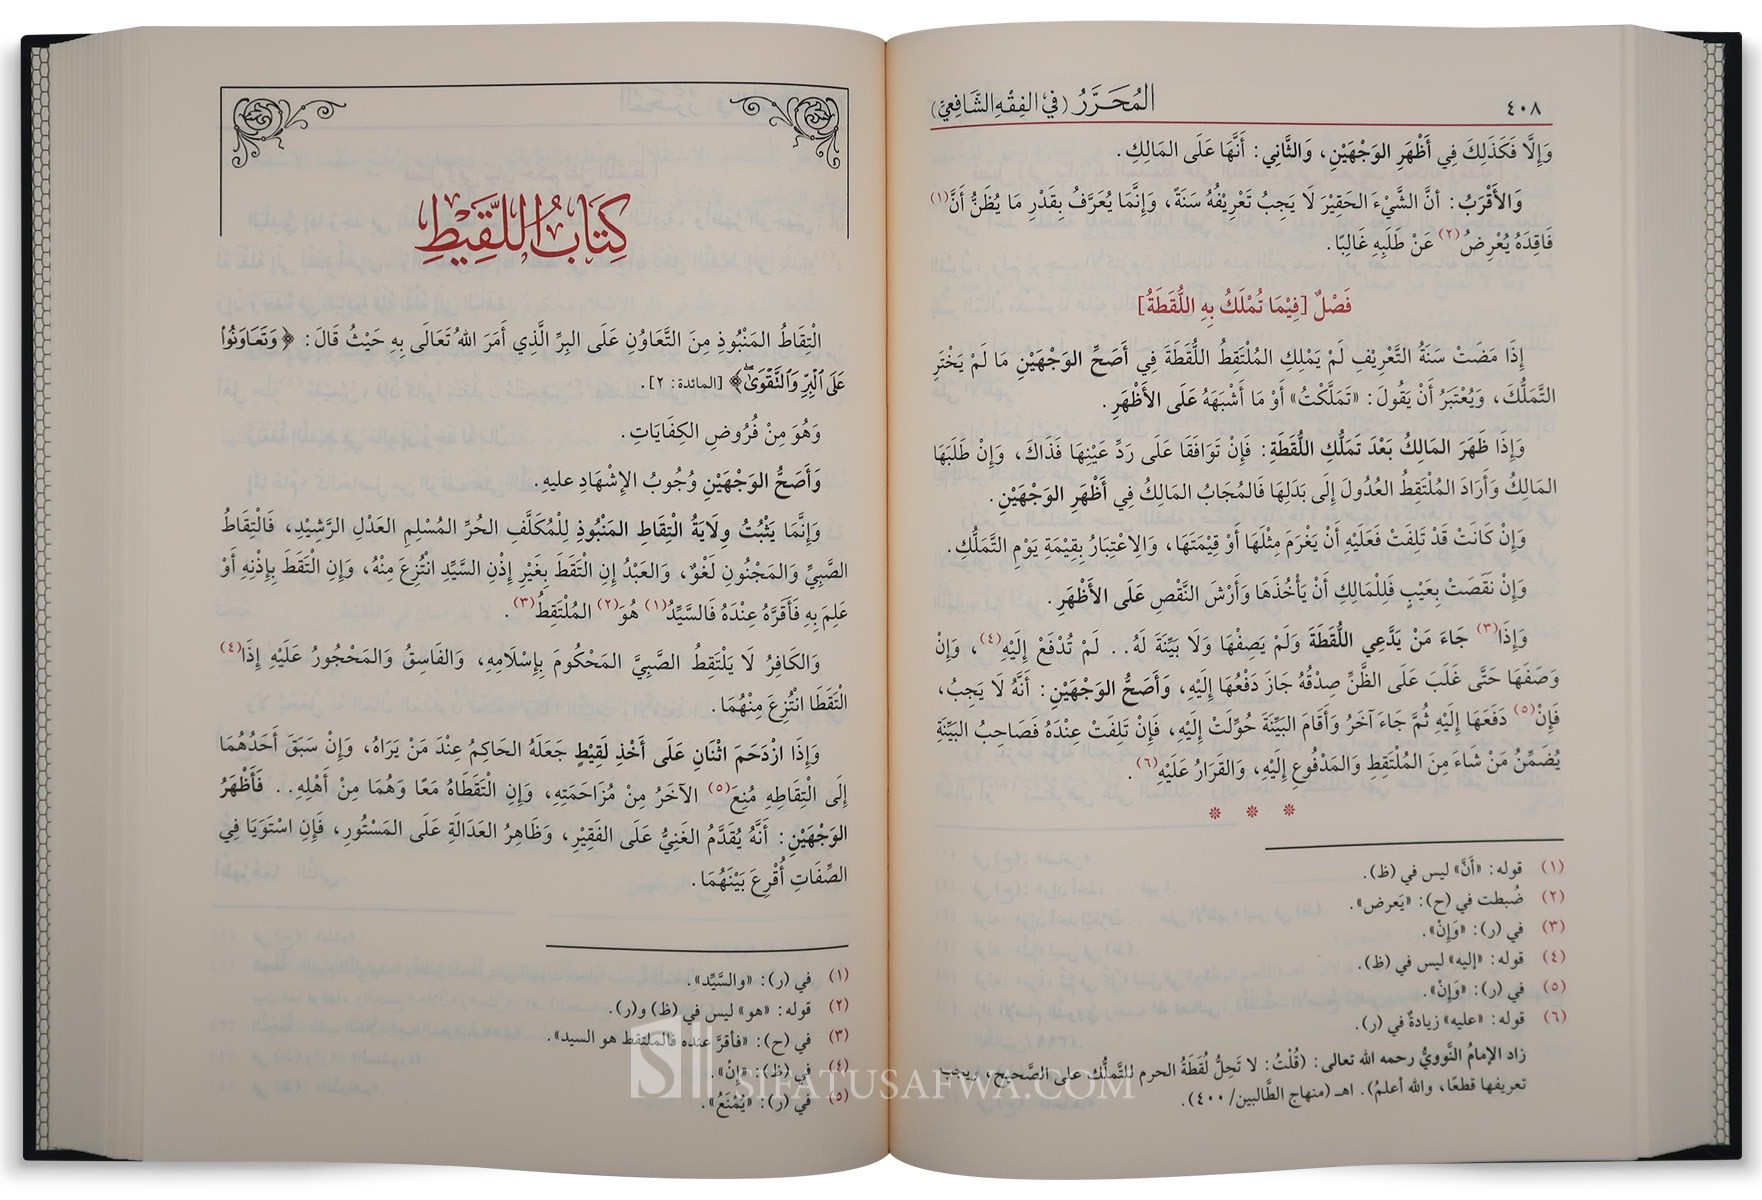 ٤٠٨ المُحَرَّرُ (في الفِقْهِ الشَّافِعِيِّ)
وَإِلَّا فَكَذَلِكَ فِي أَظْهَرِ الوَجْهَيْنِ، وَالثَّانِي: أَنَّهَا عَلَى المَالِكِ.
وَالأَقْرَبُ: أنَّ الشَّيْءَ الحَقِيْرَ لَا يَجِبُ تَعْرِيفُهُ سَنَةً، وَإِنَّمَا يُعَرَّفُ بِقَدْرِ مَا يُظَنُّ أَنَّ(١)
فَاقِدَهُ يُعْرِضُ(٢) عَنْ طَلَبِهِ غَالِبًا.
فَصْلٌ [فِيْمَا تُمْلَكُ بِهِ اللُّقَطَةُ]
إِذَا مَضَتْ سَنَةُ التَّعْرِيْفِ لَمْ يَمْلِكِ المُلْتَقِطُ اللُّقَطَةَ فِي أَصَحِّ الوَجْهَيْنِ مَا لَمْ يَخْتَرِ
التَّمَلُّكَ، وَيُعْتَبَرُ أَنْ يَقُولَ: «تَمَلَّكْتُ» أَوْ مَا أَشْبَهَهُ عَلَى الأَظْهَرِ.
وَإِذَا ظَهَرَ المَالِكُ بَعْدَ تَمَلُّكِ اللُّقَطَةِ: فَإِنْ تَوَافَقَا عَلَى رَدِّ عَيْنِهَا فَذَاكَ، وَإِنْ طَلَبَهَا
المَالِكُ وَأَرَادَ المُلْتَقِطُ العُدُولَ إِلَى بَدَلِهَا فَالمُجَابُ المَالِكُ فِي أَظْهَرِ الوَجْهَيْنِ.
وَإِنْ كَانَتْ قَدْ تَلِفَتْ فَعَلَيْهِ أَنْ يَغْرَمَ مِثْلَهَا أَوْ قِيْمَتَهَا، وَالِاعْتِبَارُ بِقِيْمَةِ يَوْمِ التَّمَلُّكِ.
وَإِنْ نَقَصَتْ بِعَيْبٍ فَلِلْمَالِكِ أَنْ يَأْخُذَهَا وَأَرْشَ النَّقْصِ عَلَى الأَظْهَرِ.
وَإِذَا(٣) جَاءَ مَنْ يَدَّعِي اللُّقَطَةَ وَلَمْ يَصِفْهَا وَلَا بَيِّنَةَ لَهُ.. لَمْ تُدْفَعْ إِلَيْهِ(٤)، وَإِنْ
وَصَفَهَا حَتَّى غَلَبَ عَلَى الظَّنِّ صِدْقُهُ جَازَ دَفْعُهَا إِلَيْهِ، وَأَصَحُّ الوَجْهَيْنِ: أَنَّهُ لَا يَجِبُ،
فَإِنْ(٥) دَفَعَهَا إِلَيْهِ ثُمَّ جَاءَ آخَرُ وَأَقَامَ البَيِّنَةَ حُوِّلَتْ إِلَيْهِ، فَإِنْ تَلِفَتْ عِنْدَهُ فَصَاحِبُ البَيِّنَةِ
يُضَمِّنُ مَنْ شَاءَ مِنَ المُلْتَقِطِ وَالمَدْفُوعِ إِلَيْهِ، وَالقَرَارُ عَلَيْهِ(٦).
* * *
(١) قوله: «أَنَّ» ليس في (ظ).
(٢) ضُبطت في (ح): «يَعرض».
(٣) في (ر): «وَإِنْ».
(٤) قوله: «إليه» ليس في (ظ).
(٥) في (ر): «وَإِنْ».
(٦) قوله: «عليه» زيادةٌ في (ر).
زاد الإمامُ النَّوويُّ رحمه الله تعالى: (قُلْتُ: لا تَحِلُّ لُقَطَةُ الحرم للتَّملُّك على الصَّحيح، ويجب
تعريفها قطعًا، والله أعلمُ). اهـ (منهاج الطَّالبين/٤٠٠).
كِتَابُ اللَّقِيْطِ
الْتِقَاطُ المَنْبُوذِ مِنَ التَّعَاوُنِ عَلَى البِرِّ الَّذِي أَمَرَ اللهُ تَعَالَى بِهِ حَيْثُ قَالَ: ﴿وَتَعَاوَنُوا۟
عَلَى ٱلْبِرِّ وَٱلتَّقْوَىٰۖ﴾ [المائدة: ٢].
وَهُوَ مِنْ فُرُوضِ الكِفَايَاتِ.
وَأَصَحُّ الوَجْهَيْنِ وُجُوبُ الإِشْهَادِ عليهِ.
وَإِنَّمَا يَثْبُتُ وِلَايَةُ الْتِقَاطِ المَنْبُوذِ لِلْمُكَلَّفِ الحُرِّ المُسْلِمِ العَدْلِ الرَّشِيْدِ، فَالْتِقَاطُ
الصَّبِيِّ وَالمَجْنُونِ لَغْوٌ، وَالعَبْدُ إِنِ الْتَقَطَ بِغَيْرِ إِذْنِ السَّيِّدِ انْتُزِعَ مِنْهُ، وَإِنِ الْتَقَطَ بِإِذْنِهِ أَوْ
عَلِمَ بِهِ فَأَقَرَّهُ عِنْدَهُ فَالسَّيِّدُ(١) هُوَ(٢) المُلْتَقِطُ(٣).
وَالكَافِرُ لَا يَلْتَقِطُ الصَّبِيَّ المَحْكُومَ بِإِسْلَامِهِ، وَالفَاسِقُ وَالمَحْجُورُ عَلَيْهِ إِذَا(٤)
الْتَقَطَا انْتُزِعَ مِنْهُمَا.
وَإِذَا ازْدَحَمَ اثْنَانِ عَلَى أَخْذِ لَقِيْطٍ جَعَلَهُ الحَاكِمُ عِنْدَ مَنْ يَرَاهُ، وَإِنْ سَبَقَ أَحَدُهُمَا
إِلَى الْتِقَاطِهِ مُنِعَ(٥) الآخَرُ مِنْ مُزَاحَمَتِهِ، وَإِنِ الْتَقَطَاهُ مَعًا وَهُمَا مِنْ أَهْلِهِ.. فَأَظْهَرُ
الوَجْهَيْنِ: أَنَّهُ يُقَدَّمُ الغَنِيُّ عَلَى الفَقِيْرِ، وَظَاهِرُ العَدَالَةِ عَلَى المَسْتُورِ، فَإِنِ اسْتَوَيَا فِي
الصِّفَاتِ أُقْرِعَ بَيْنَهُمَا.
(١) في (ر): «والسَّيِّد».
(٢) قوله: «هو» ليس في (ظ) و(ر).
(٣) في (ح): «فأقرَّ عنده فالملتقط هو السيد».
(٤) في (ظ): «إِنْ».
(٥) في (ر): «يُمْنَعُ».
SIFATUSAFWA.COM